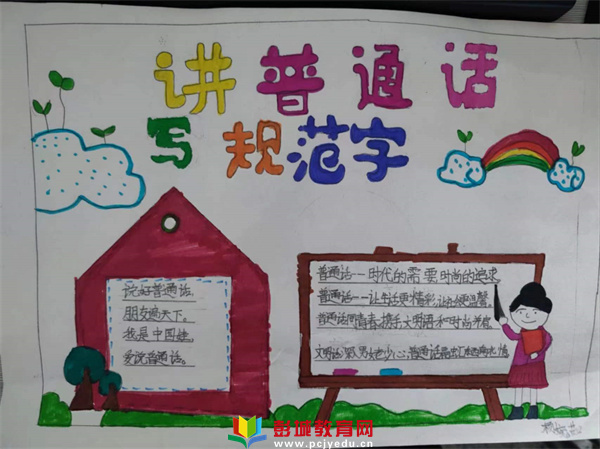 讲普通话
写规范字
说好普通话,
朋友遍天下。
我是中国娃,
爱说普通话。
普通话--时代的需要时尚的追求
普通话--让生活更精彩,让
普通话同青春携手,文明语和时尚
文明 普通话
彭城教育网
www.pcjyedu.cn